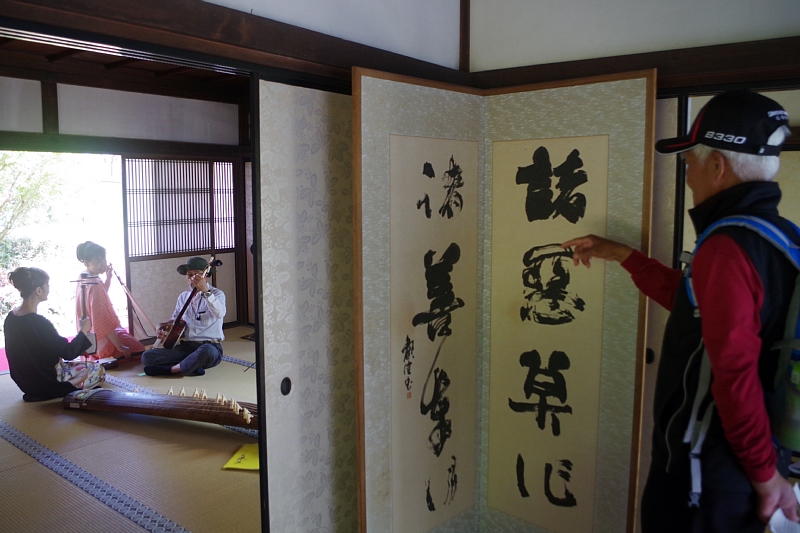 諸悪莫作
諸善奉行
B330